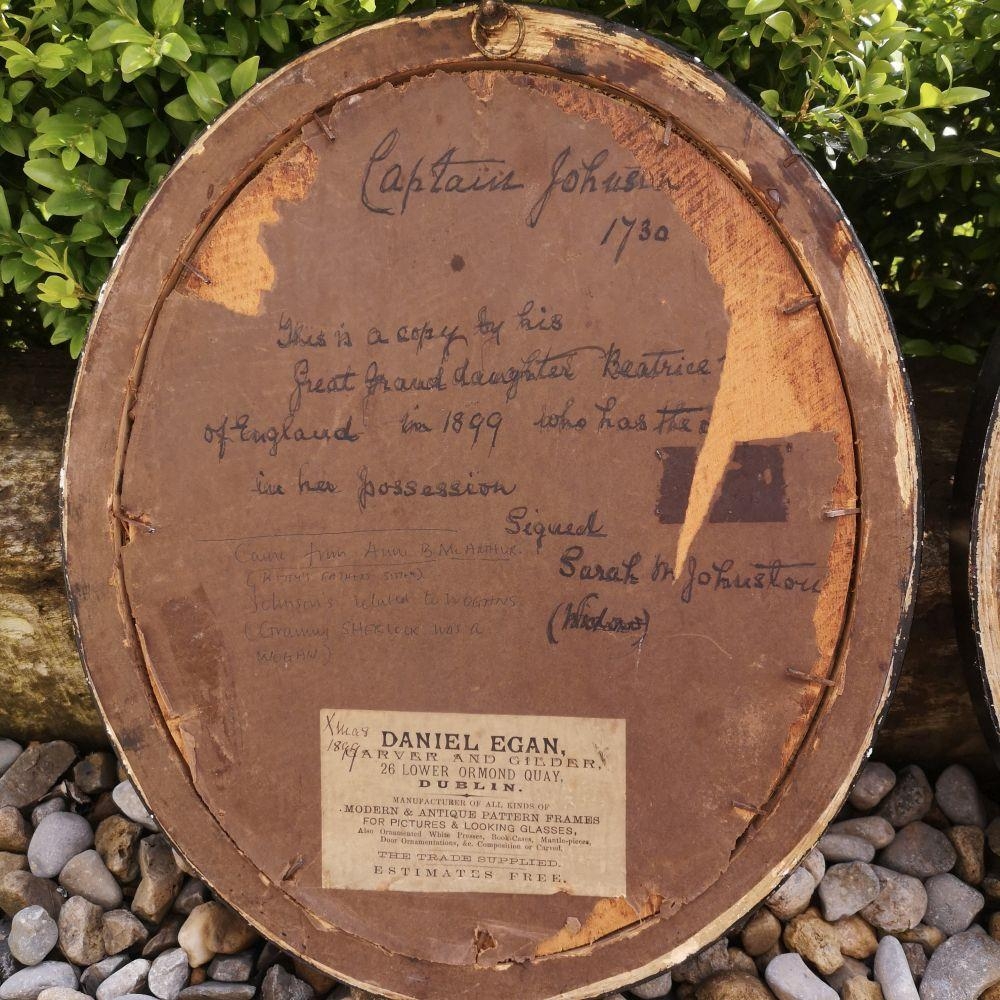 Captain Johnson
1730
This is a copy by his
Great Grand daughter Beatrice
of England in 1899 who has the
in her possession
Signed
Sarah M Johnston
(Widow)
Came from Anne B McARTHUR.
(KITTY'S FATHERS SISTER)
Johnson's related to WOGANS
(Granny SHERLOCK was a
WOGAN)
Xmas
1899
DANIEL EGAN,
CARVER AND GILDER,
26 LOWER ORMOND QUAY,
DUBLIN.
MANUFACTURER OF ALL KINDS OF
MODERN & ANTIQUE PATTERN FRAMES
FOR PICTURES & LOOKING GLASSES,
Also Ornamented White Presses, Book-Cases, Mantle-pieces,
Door Ornamentations, &c. Composition or Carved.
THE TRADE SUPPLIED.
ESTIMATES FREE.